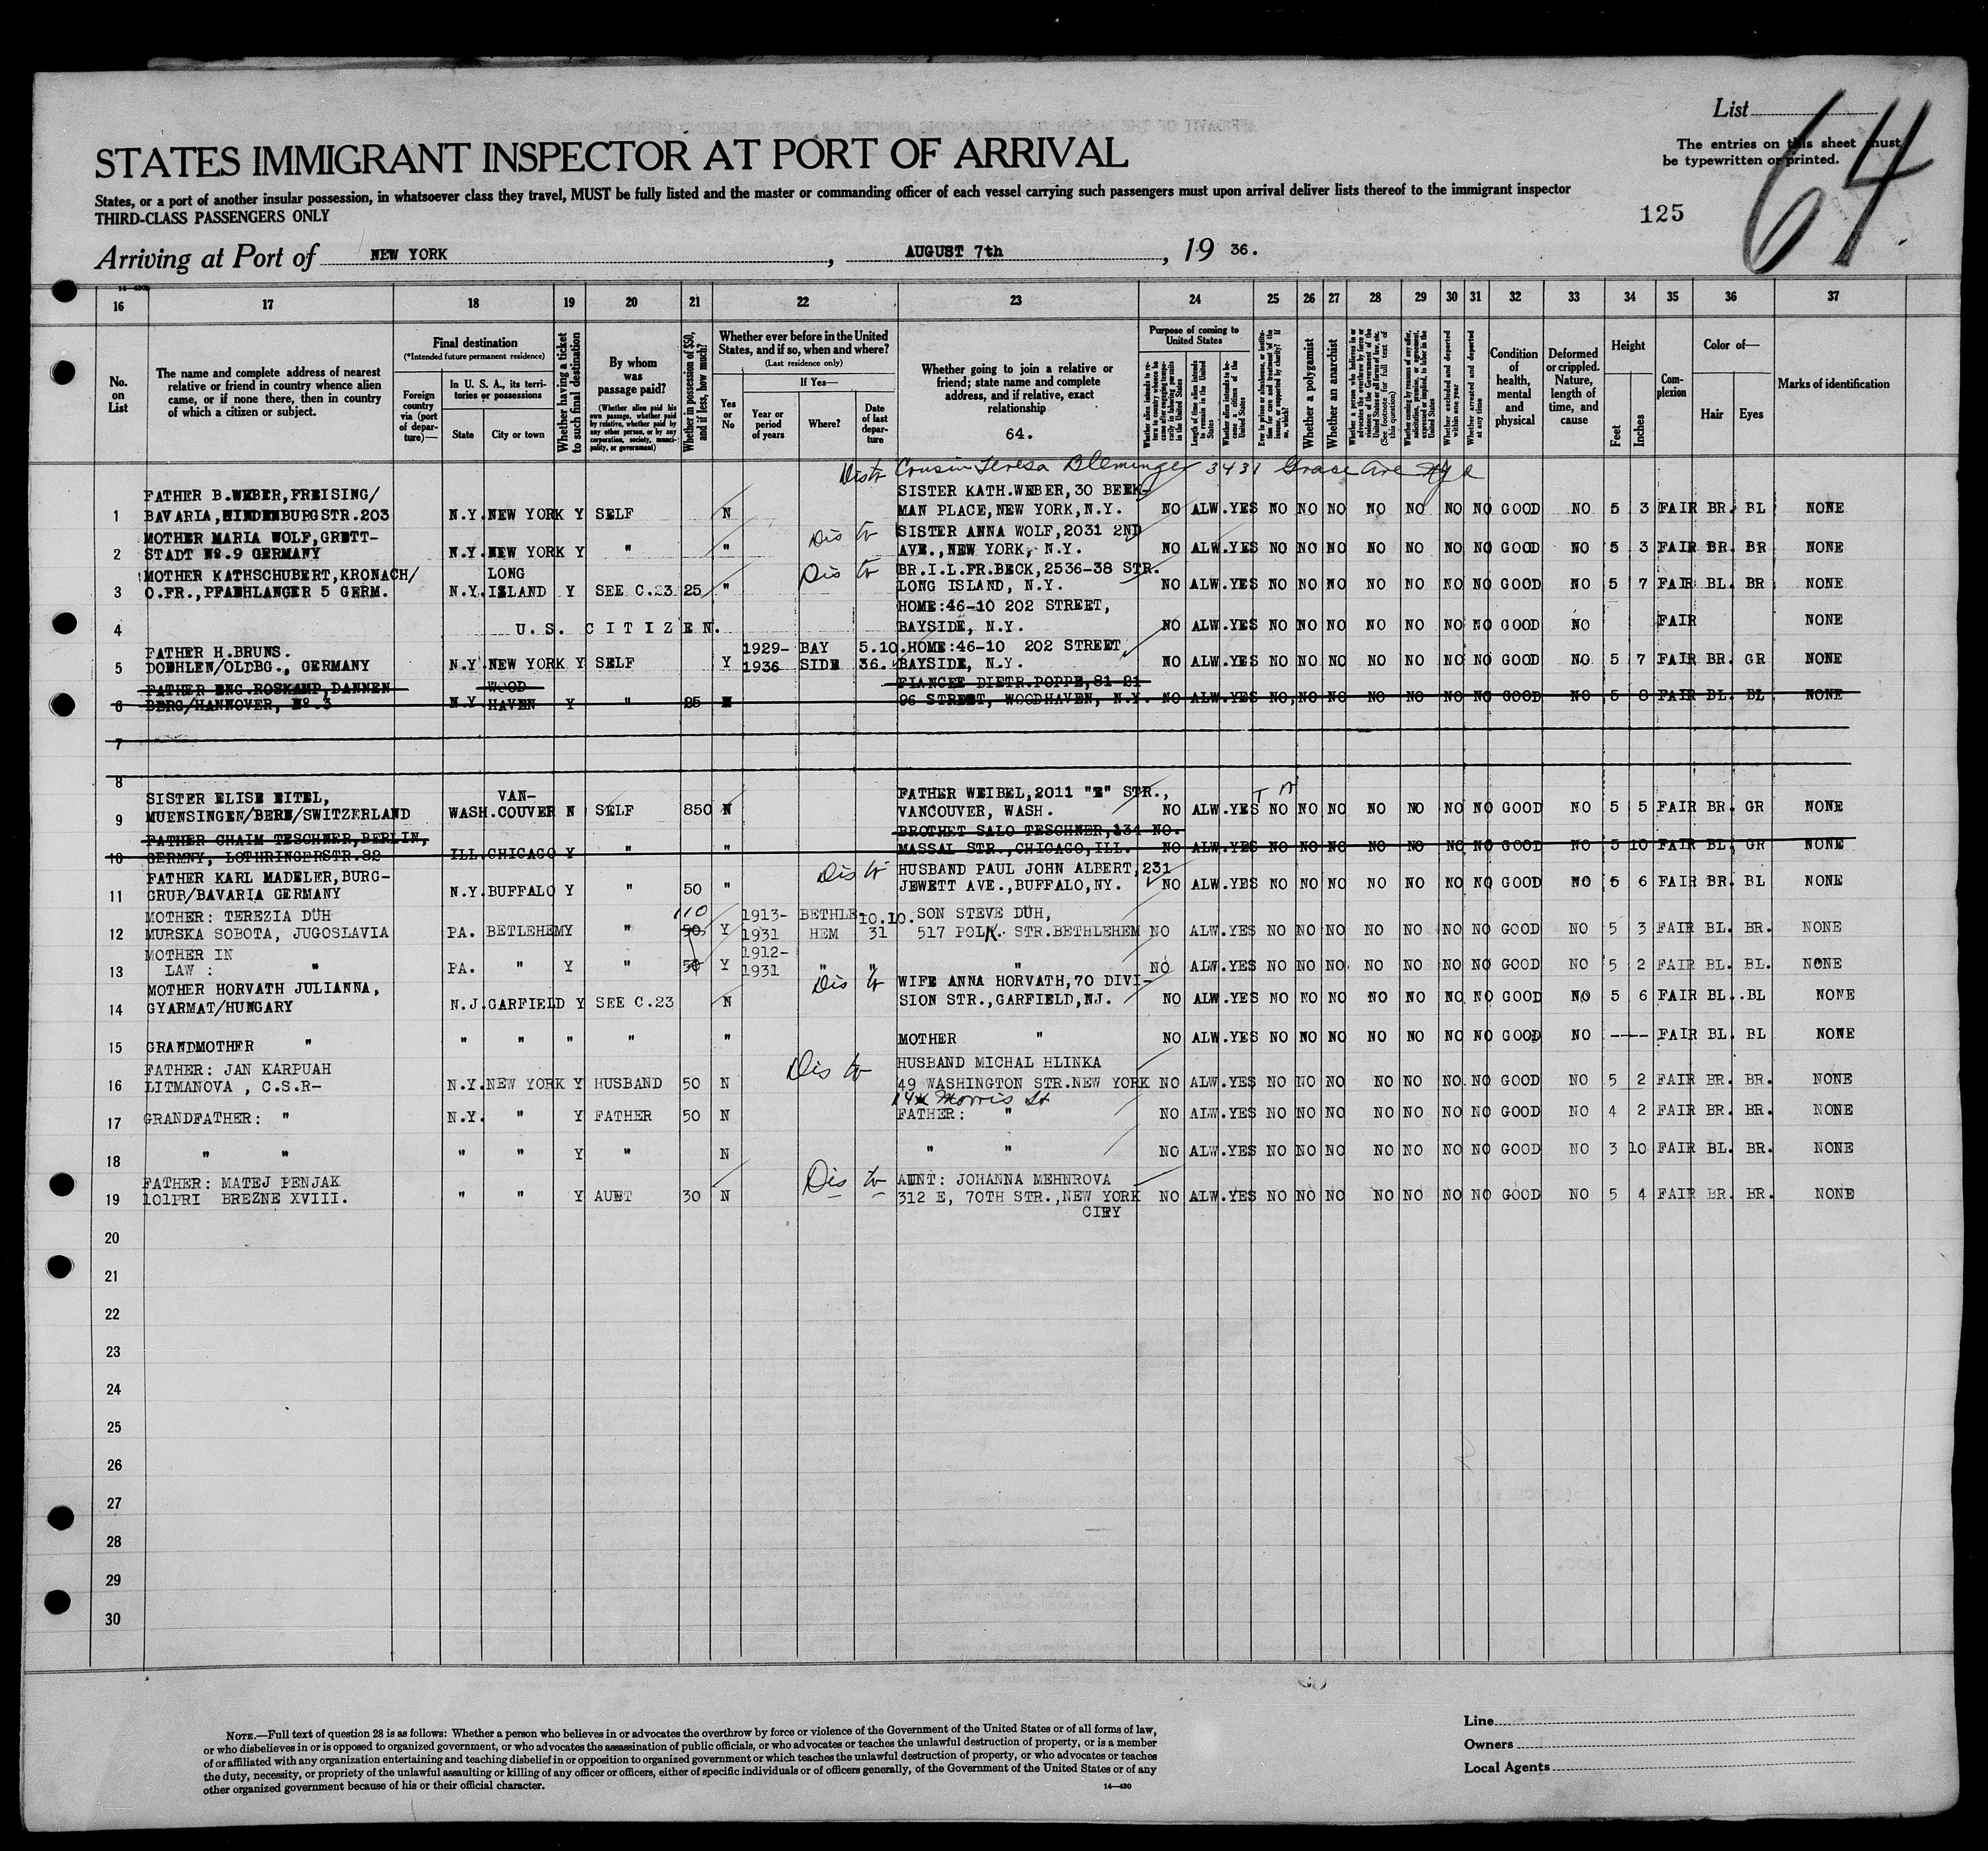 List
64
The entries on this sheet must
be typewritten or printed.
STATES IMMIGRANT INSPECTOR AT PORT OF ARRIVAL
States, or a port of another insular possession, in whatsoever class they travel, MUST be fully listed and the master or commanding officer of each vessel carrying such passengers must upon arrival deliver lists thereof to the immigrant inspector
THIRD-CLASS PASSENGERS ONLY
125
Arriving at Port of NEW YORK, AUGUST 7th, 19 36.
16 17 18 19 20 21 22 23 24 25 26 27 28 29 30 31 32 33 34 35 36 37
No. on List
The name and complete address of nearest relative or friend in country whence alien came, or if none there, then in country of which a citizen or subject.
Final destination
(*Intended future permanent residence)
Foreign country via (port of departure)—
In U. S. A., its territories or possessions
State
City or town
Whether having a ticket to such final destination
By whom was passage paid?
(Whether alien paid his own passage, whether paid by relative, whether paid by any other person, or by any corporation, society, municipality, or government)
Whether in possession of $50, and if less, how much?
Whether ever before in the United States, and if so, when and where?
(Last residence only)
Yes or No
If Yes—
Year or period of years
Where?
Date of last departure
Whether going to join a relative or friend; state name and complete address, and if relative, exact relationship
64.
Purpose of coming to United States
Whether alien intends to return to country whence he came after engaging temporarily in laboring pursuits in the United States
Length of time alien intends to remain in the United States
Whether alien intends to become a citizen of the United States
Ever in prison or almshouse, or institution for care and treatment of the insane, or supported by charity? If so, which?
Whether a polygamist
Whether an anarchist
Whether a person who believes in or advocates the overthrow by force or violence of the Government of the United States or all forms of law, etc. (See footnote for full text of this question)
Whether coming by reasons of any offer, solicitation, promise, or agreement, expressed or implied, to labor in the United States
Whether excluded and deported within one year
Whether arrested and deported at any time
Condition of health, mental and physical
Deformed or crippled. Nature, length of time, and cause
Height
Feet
Inches
Complexion
Color of—
Hair
Eyes
Marks of identification
Cousin Teresa Bleminger 3431 Grace Ave
FATHER B.WEBER,FREISING/ SISTER KATH.WEBER,30 BEEK-
1 BAVARIA,HINDENBURGSTR.203 N.Y. NEW YORK Y SELF N MAN PLACE,NEW YORK,N.Y. NO ALW.YES NO NO NO NO NO NO NO GOOD NO 5 3 FAIR BR. BL NONE
MOTHER MARIA WOLF,GRETT- Dis to SISTER ANNA WOLF,2031 2ND
2 STADT No.9 GERMANY N.Y. NEW YORK Y " " AVE.,NEW YORK, N.Y. NO ALW.YES NO NO NO NO NO NO NO GOOD NO 5 3 FAIR BR. BR NONE
MOTHER KATHSCHUBERT,KRONACH/ LONG Dis to BR.I.L.FR.BECK,2536-38 STR.
3 O.FR.,PFAEHLANGER 5 GERM. N.Y. ISLAND Y SEE C.23 25 " LONG ISLAND, N.Y. NO ALW.YES NO NO NO NO NO NO NO GOOD NO 5 7 FAIR BL. BR NONE
HOME:46-10 202 STREET,
4 U.S. CITIZEN. BAYSIDE, N.Y. NO ALW.YES NO NO NO NO NO NO NO GOOD NO FAIR NONE
FATHER H.BRUNS. 1929- BAY 5.10. HOME:46-10 202 STREET,
5 DOEHLEN/OLDBG., GERMANY N.Y. NEW YORK Y SELF Y 1936 SIDE 36. BAYSIDE, N.Y. NO ALW.YES NO NO NO NO NO NO NO GOOD NO 5 7 FAIR BR. GR NONE
FATHER ENG.ROSKAMP,DANNEN WOOD FIANCEE DIETR.POPPE,81 21
6 BERG/HANNOVER, No.3 N.Y. HAVEN Y " 25 N 96 STREET, WOODHAVEN, N.Y. NO ALW.YES NO NO NO NO NO NO NO GOOD NO 5 8 FAIR BL. BL NONE
7
8
SISTER ELISE EITEL, VAN- FATHER WEIBEL,2011 "E" STR.,
9 MUENSINGEN/BERN/SWITZERLAND WASH.COUVER N SELF 850 N VANCOUVER, WASH. NO ALW.YES NO NO NO NO NO NO NO GOOD NO 5 5 FAIR BR. GR NONE
FATHER CHAIM TESCHNER,BERLIN, BROTHET SALO TESCHNER,134 NO.
10 GERMNY, LOTHRINGERSTR.82 ILL. CHICAGO Y " " MASSAL STR.,CHICAGO,ILL. NO ALW.YES NO NO NO NO NO NO NO GOOD NO 5 10 FAIR BL. GR NONE
FATHER KARL MADELER,BURG- Dis to HUSBAND PAUL JOHN ALBERT,231
11 GRUB/BAVARIA GERMANY N.Y. BUFFALO Y " 50 " JEWETT AVE.,BUFFALO,NY. NO ALW.YES NO NO NO NO NO NO NO GOOD NO 5 6 FAIR BR. BL NONE
MOTHER: TEREZIA DÜH 110 1913- BETHLE 10.10. SON STEVE DÜH,
12 MURSKA SOBOTA, JUGOSLAVIA PA. BETLEHEM Y " 50 Y 1931 HEM 31 517 POLK. STR.BETHLEHEM NO ALW.YES NO NO NO NO NO NO NO GOOD NO 5 3 FAIR BL. BR. NONE
MOTHER IN 1912-
13 LAW : " PA. " Y " 50 Y 1931 " " " NO ALW.YES NO NO NO NO NO NO NO GOOD NO 5 2 FAIR BL. BL. NONE
MOTHER HORVATH JULIANNA, Dis to WIFE ANNA HORVATH,70 DIVI-
14 GYARMAT/HUNGARY N.J. GARFIELD Y SEE C.23 N SION STR.,GARFIELD,NJ. NO ALW.YES NO NO NO NO NO NO NO GOOD NO 5 6 FAIR BL. BL NONE
15 GRANDMOTHER " " " " " " MOTHER " NO ALW.YES NO NO NO NO NO NO NO GOOD NO ---- FAIR BL. BL NONE
FATHER: JAN KARPUAH Dis to HUSBAND MICHAL HLINKA
16 LITMANOVA , C.S.R- N.Y. NEW YORK Y HUSBAND 50 N 49 WASHINGTON STR.NEW YORK NO ALW.YES NO NO NO NO NO NO NO GOOD NO 5 2 FAIR BR. BR. NONE
Morris St
17 GRANDFATHER: " N.Y. " Y FATHER 50 N FATHER: " NO ALW.YES NO NO NO NO NO NO NO GOOD NO 4 2 FAIR BR. BR. NONE
18 " " " " Y " N " " NO ALW.YES NO NO NO NO NO NO NO GOOD NO 3 10 FAIR BL. BR. NONE
FATHER: MATEJ PENJAK Dis to AUNT: JOHANNA MEHNROVA
19 101PRI BREZNE XVIII. " " Y AUNT 30 N 312 E, 70TH STR.,NEW YORK NO ALW.YES NO NO NO NO NO NO NO GOOD NO 5 4 FAIR BR. BR. NONE
CITY
20
21
22
23
24
25
26
27
28
29
30
NOTE.—Full text of question 28 is as follows: Whether a person who believes in or advocates the overthrow by force or violence of the Government of the United States or of all forms of law,
or who disbelieves in or is opposed to organized government, or who advocates the assassination of public officials, or who advocates or teaches the unlawful destruction of property, or is a member
of or affiliated with any organization entertaining and teaching disbelief in or opposition to organized government or which teaches the unlawful destruction of property, or who advocates or teaches
the duty, necessity, or propriety of the unlawful assaulting or killing of any officer or officers, either of specific individuals or of officers generally, of the Government of the United States or of any
other organized government because of his or their official character.
14—430
Line
Owners
Local Agents